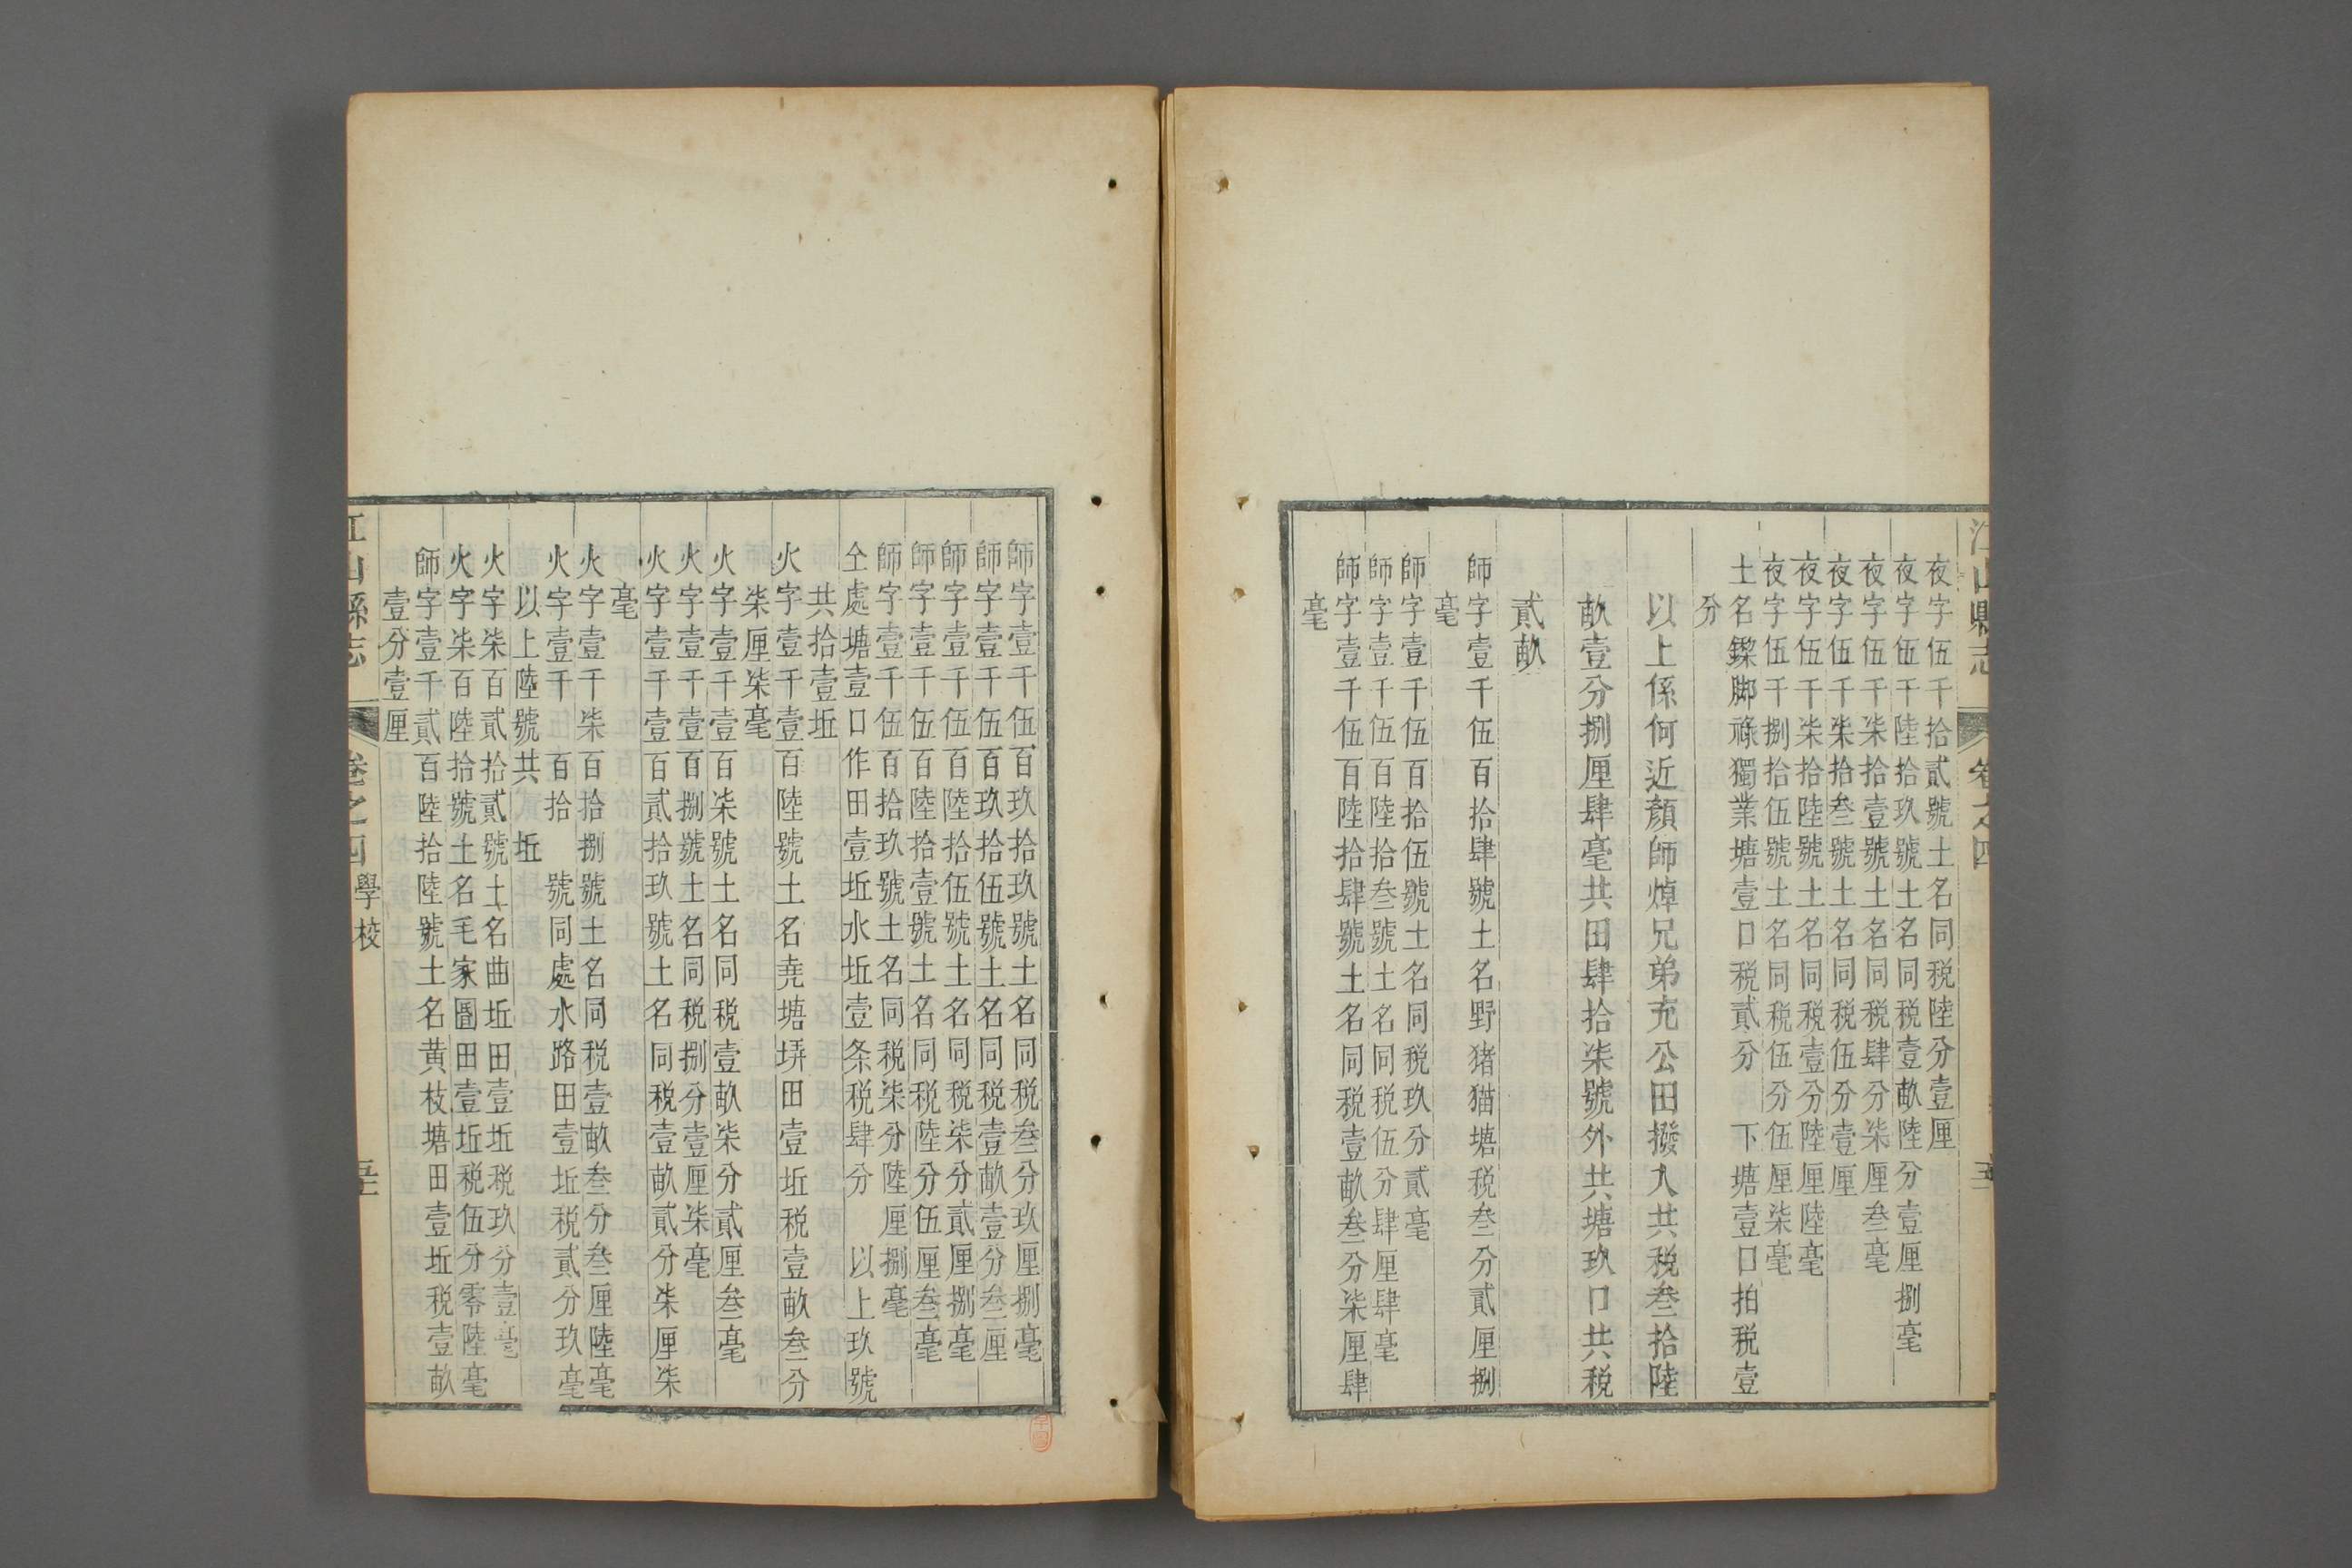 江山縣志
卷之四
夜字伍千拾貳號土名同税陸分壹厘
夜字伍千陸拾玖號土名同税壹畝陸分壹厘捌毫
夜字伍千柒拾壹號土名同税肆分柒厘叁毫
夜字伍千柒拾叁號土名同税伍分壹厘
夜字伍千柒拾陸號土名同税壹分陸厘陸毫
夜字伍千捌拾伍號土名同税伍分伍厘柒毫
土名鏫脚祿獨業塘壹口税貳分 下塘壹口拍税壹
分
以上係何近顏師焯兄弟充公田撥入共税叁拾陸
畝壹分捌厘肆毫共田肆拾柒號外共塘玖口共税
貳畝
師字壹千伍百拾肆號土名野猪猫塘税叁分貳厘捌
毫
師字壹千伍百拾伍號土名同税玖分貳毫
師字壹千伍百陸拾叁號土名同税伍分肆厘肆毫
師字壹千伍百陸拾肆號土名同税壹畝叁分柒厘肆
毫
師字壹千伍百玖拾玖號土名同税叁分玖厘捌毫
師字壹千伍百玖拾伍號土名同税壹畝壹分叁厘
師字壹千伍百陸拾伍號土名同税柒分貳厘捌毫
師字壹千伍百陸拾壹號土名同税陸分伍厘叁毫
師字壹千伍百拾玖號土名同税柒分陸厘捌毫
仝處塘壹口作田壹坵水坵壹条税肆分 以上玖號
共拾壹坵
火字壹千壹百陸號土名堯塘塝田壹坵税壹畝叁分
柒厘柒毫
火字壹千壹百柒號土名同税壹畝柒分貳厘叁毫
火字壹千壹百捌號土名同税捌分壹厘柒毫
火字壹千壹百貳拾玖號土名同税壹畝貳分柒厘柒
毫
火字壹千柒百拾捌號土名同税壹畝叁分叁厘陸毫
火字壹千 百拾 號同處水路田壹坵税貳分玖毫
以上陸號共 坵
火字柒百貳拾貳號土名曲坵田壹坵税玖分壹毫
火字柒百陸拾號土名毛家圖田壹坵税伍分零陸毫
師字壹千貳百陸拾陸號土名黄枝塘田壹坵税壹畝
壹分壹厘
江山縣志
卷之四
學校